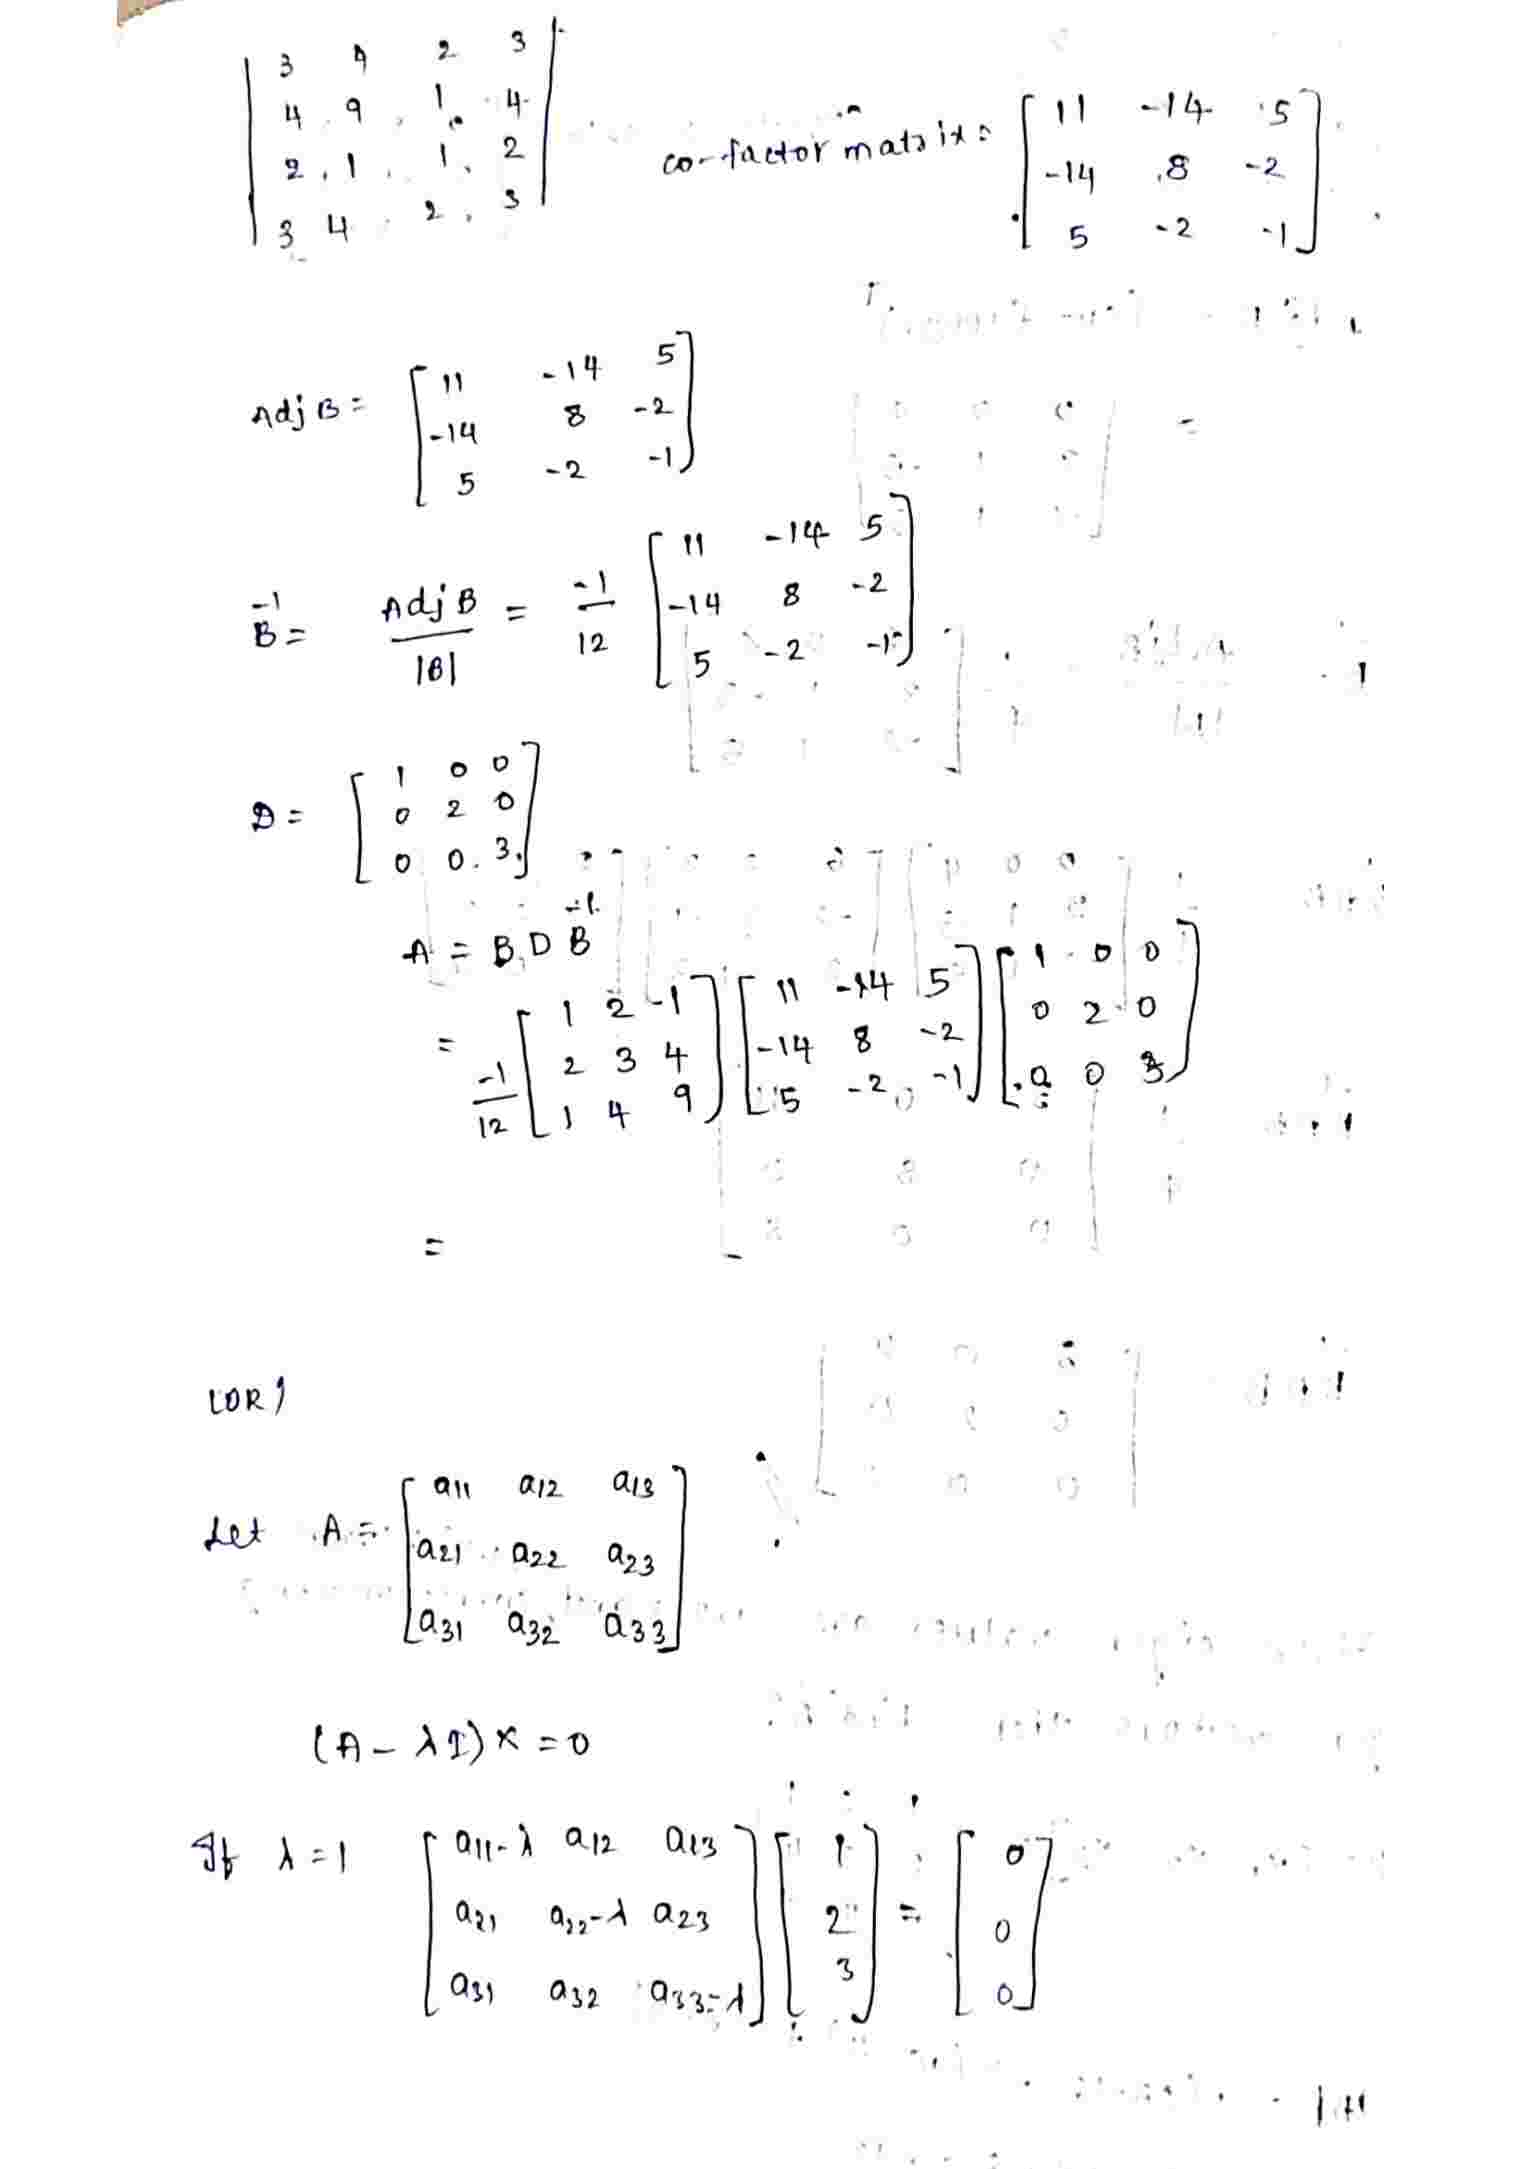 | 3 4 2 3 |
| 4 9 1 4 |
| 2 1 1 2 |
| 3 4 2 3 |
co-factor matrix = [ 11 -14 5
-14 8 -2
5 -2 -1 ]
Adj B = [ 11 -14 5
-14 8 -2
5 -2 -1 ]
B⁻¹ = Adj B / |B| = -1/12 [ 11 -14 5
-14 8 -2
5 -2 -1 ]
D = [ 1 0 0
0 2 0
0 0 3 ]
A = B D B⁻¹
= -1/12 [ 1 2 -1
2 3 4
1 4 9 ] [ 11 -14 5
-14 8 -2
5 -2 -1 ] [ 1 0 0
0 2 0
0 0 3 ]
=
(OR)
Let A = [ a11 a12 a13
a21 a22 a23
a31 a32 a33 ]
(A - λI) x = 0
If λ = 1 [ a11-λ a12 a13
a21 a22-λ a23
a31 a32 a33-λ ] [ 1
2
3 ] = [ 0
0
0 ]